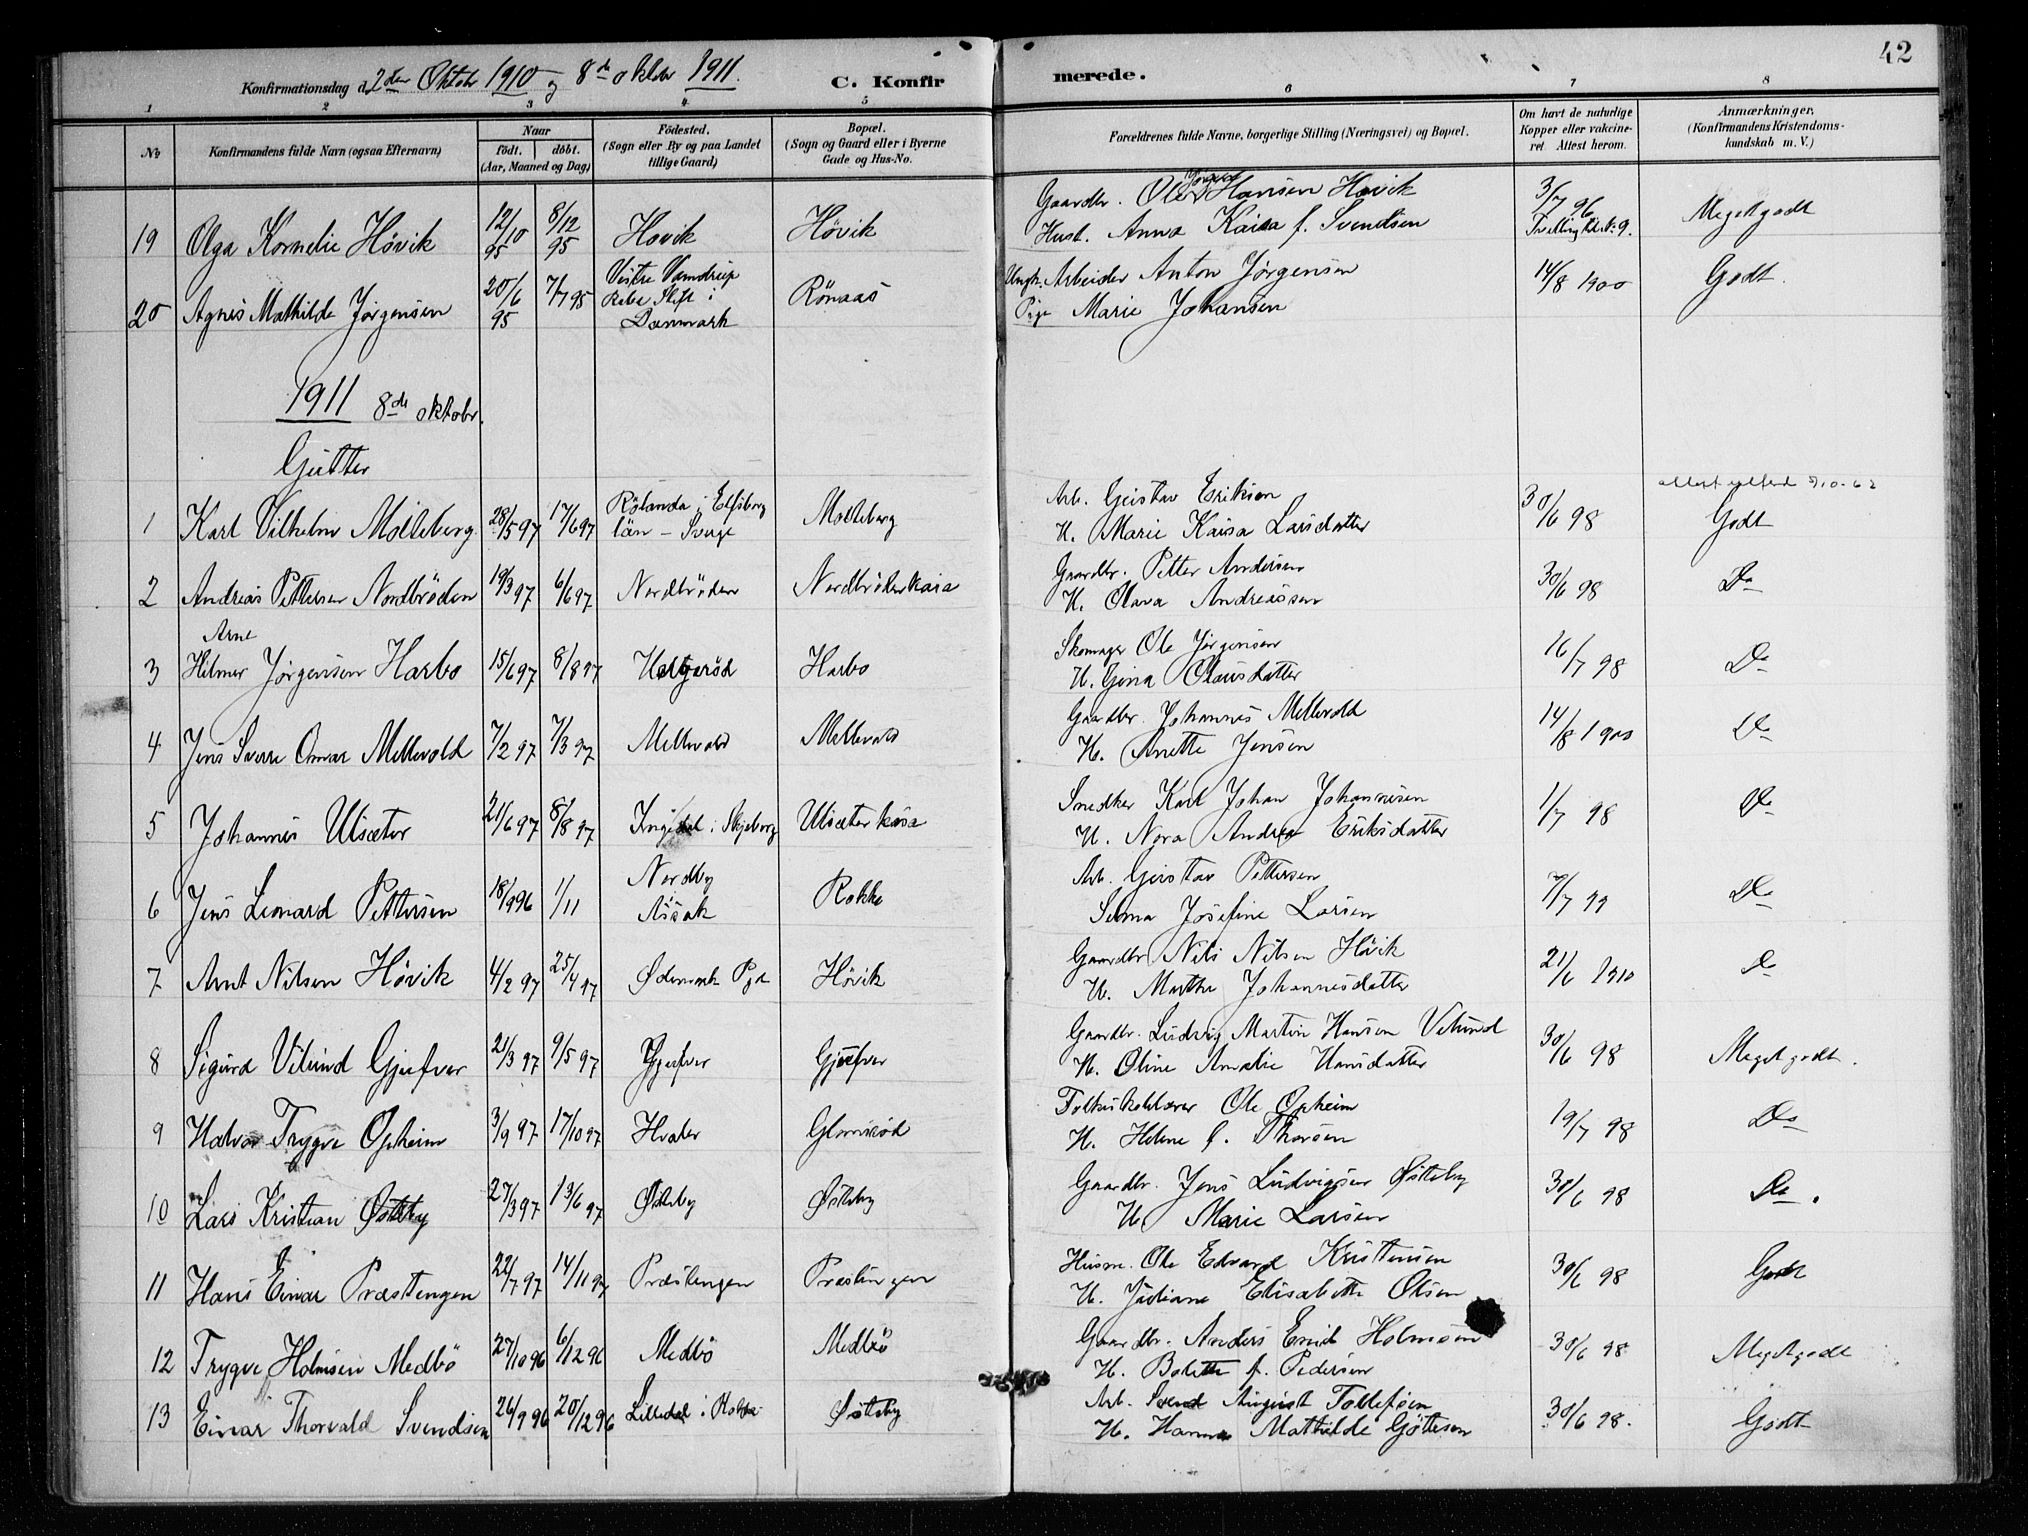 42
Konfirmationsdag d. 2den Oktobr 1910 og 8de oktobr 1911.
C. Konfirmerede.
1 2 3 4 5 6 7 8
No
Konfirmandens fulde Navn (ogsaa Efternavn)
Naar
født. døbt.
(Aar, Maaned og Dag)
Fødested.
(Sogn eller By og paa Landet
tillige Gaard)
Bopæl.
(Sogn og Gaard eller i Byerne
Gade og Hus-No.
Forældrenes fulde Navne, borgerlige Stilling (Næringsvei) og Bopæl.
Om havt de naturlige
Kopper eller vakcine-
ret Attest herom.
Anmærkninger.
(Konfirmandens Kristendoms-
kundskab m. V.)
19 Olga Kornelie Hövik 12/10 95 8/12 95 Hovik Hövik Gaardbr. Ole Hansen Høvik
Hust. Anna Kaisa f. Svendsen 3/7 96 Meget godt
20 Agnes Mathilde Jørgensen 20/6 95 7/7 95 Vestre Vamdrup
Ribe Stift i
Danmark Rönaas Ungk. Arbeider Anton Jørgensen
Pige Marie Johansen 14/8 1900 Godt.
1911 8de oktobr.
Gutter
1 Karl Vilhelm Molteberg 28/5 97 17/6 97 Rölanda i Elfsborg
län - Sverge Molteberg Arb. Gustav Eriksen
H. Marie Kaisa Larsdatter 30/6 98 Godt
2 Andreas Pettersen Nordbröden 19/3 97 6/6 97 Nordbröden Nordbrödenkasa Gaardbr. Petter Andersen
H. Olava Andreassen 30/6 98 Do
3 Arne
Hilmer Jørgensen Harbo 15/6 97 8/8 97 Holgerød Harbo Skomager Ole Jørgensen
H. Gina Olausdatter 16/7 98 Do
4 Jens Sverre Omar Mellevold 7/2 97 7/3 97 Mellevold Mellevold Gaardbr. Johannes Mellevold
H. Anette Jensen 14/8 1900 Do
5 Johannes Ulsæter 21/6 97 8/8 97 Ingedal i Skjeberg Ulsæterkasa Snedker Karl Johan Johannesen
H. Nora Andrea Eriksdatter 1/7 98 Do
6 Jens Leonard Pettersen 18/9 96 1/11 Nordby
Assak Rokke Arb. Gustav Pettersen
Selma Josefine Larsen 7/7 99 Do
7 Arnt Nilsen Hövik 4/2 97 25/4 97 Ødemark Pgd Hövik Gaardbr Nils Nilsen Hövik
H. Marthe Johannesdatter 21/6 1910 Do
8 Sigurd Vilund Gjefver 21/3 97 9/5 97 Gjefver Gjefver Gaardbr. Ludvig Martin Hansen Vilund
H. Oline Amalie Hansdatter 30/6 98 Meget godt.
9 Halvor Trygve Opheim 3/9 97 17/10 97 Hvaler Glomsrød Folkeskolelærer Ole Opheim
H. Helene f. Thorsen 19/7 98 Do
10 Lars Kristian Østeby 27/3 97 13/6 97 Østeby Østeby Gaardbr. Jens Ludvigsen Østeby
H. Marie Larsen 30/6 98 Do.
11 Hans Einar Præstengen 22/7 97 14/11 97 Præstengen Præstengen Husm. Ole Edvard Kristensen
H. Juliane Elisabeth Olsen 30/6 98 Godt
12 Trygve Holmsen Medbö 27/10 96 6/12 96 Medbö Medbö Gaardbr. Anders Emil Holmsen
H. Bolette f. Pedersen 30/6 98 Meget godt
13 Einar Thorvald Svendsen 26/9 96 20/12 96 Lilledal i Rokke Østeby Arb. Svend August Tollefsen
H. Hanna Mathilde Göttesen 30/6 98. Godt